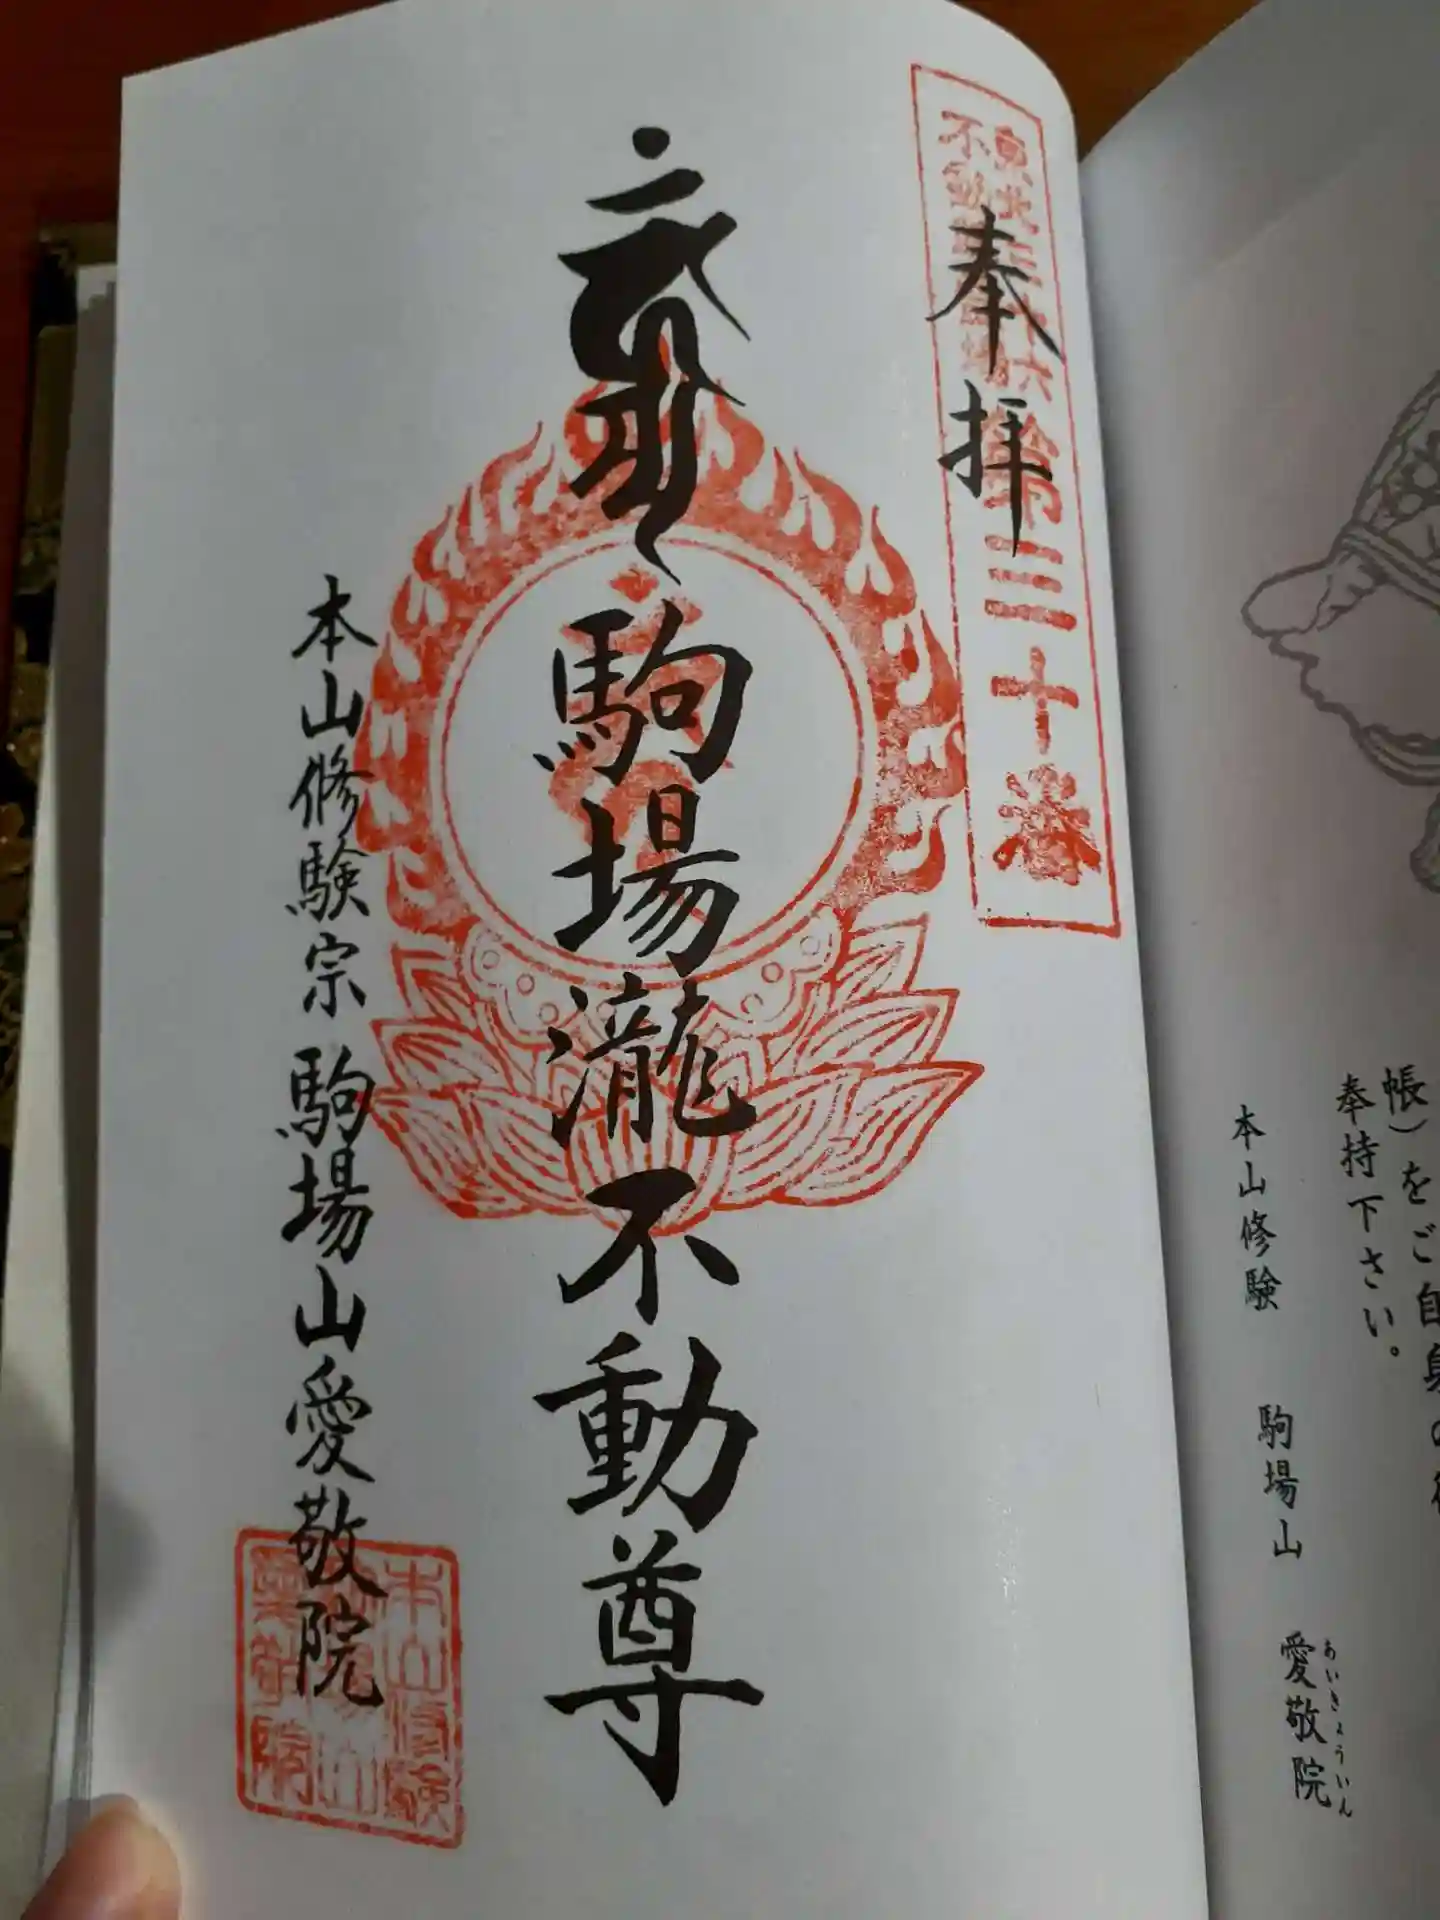 帳）をご自身の
奉持下さい。
本山修験　駒場山　愛敬院
あいきょういん
東北三十六
不動尊霊場
第三十番
奉拝
駒場瀧不動尊
本山修験宗　駒場山愛敬院
本山修験
駒場山
愛敬院